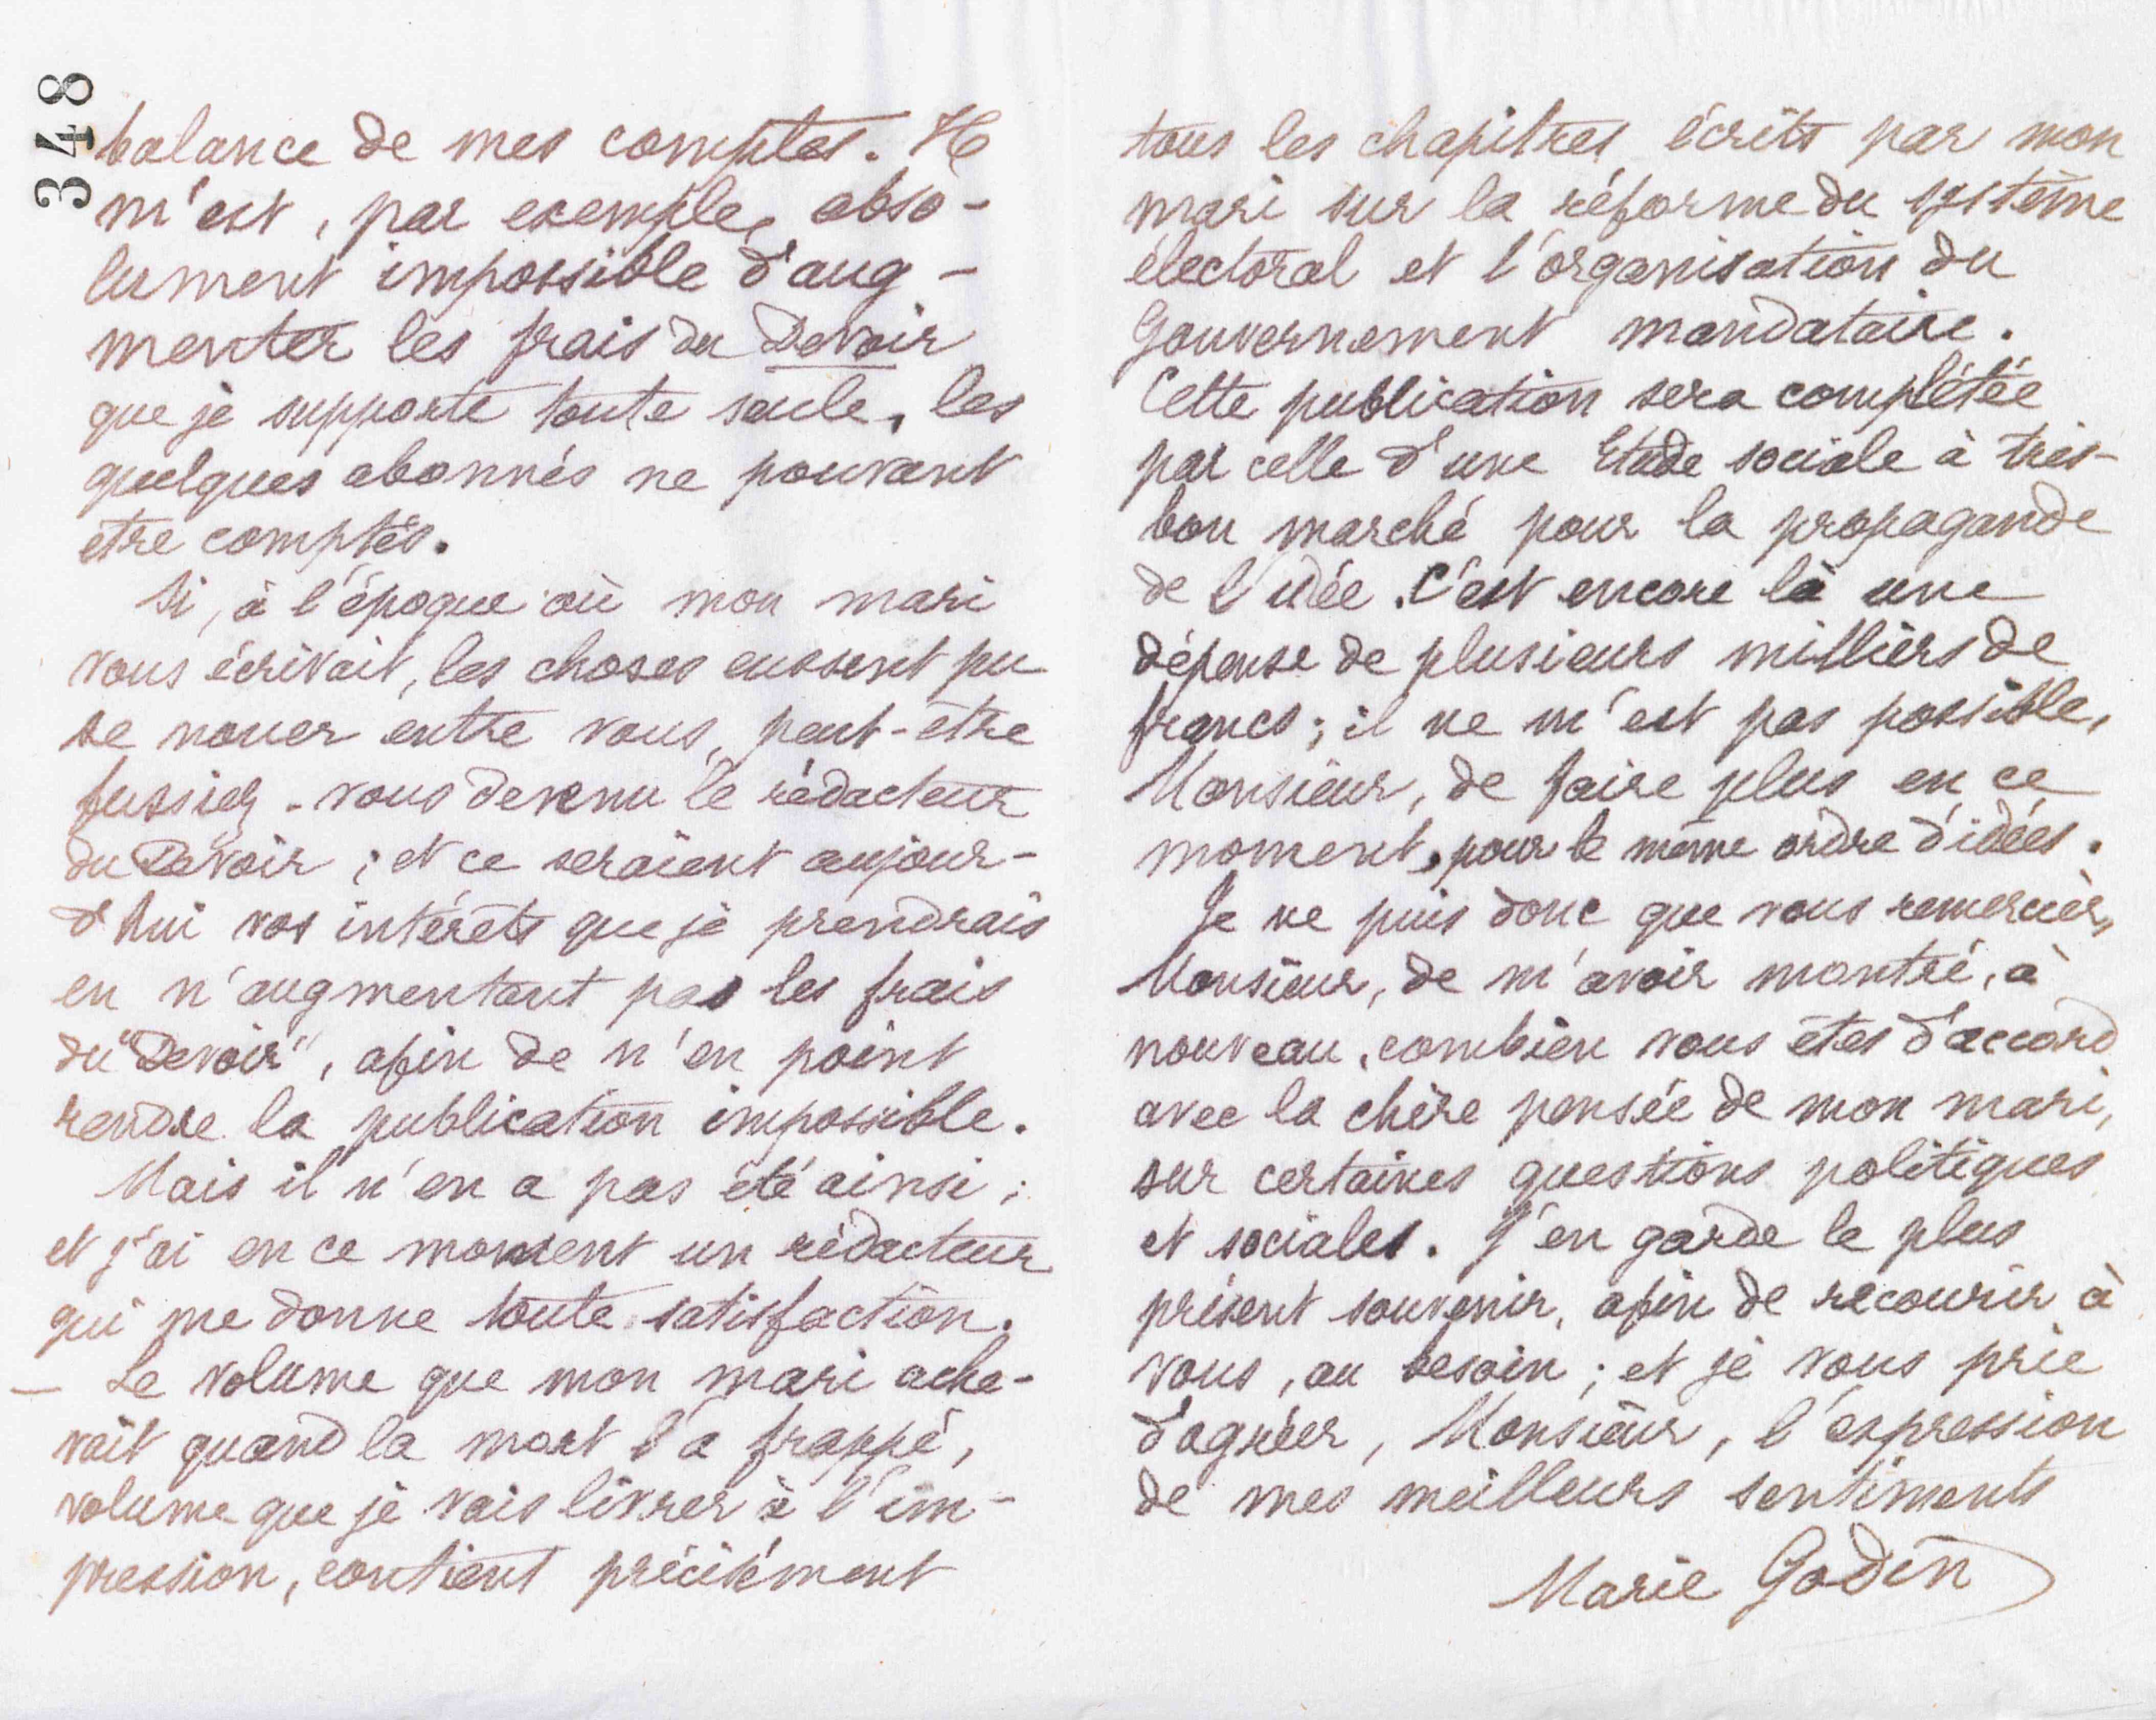 348
balance de mes comptes. Il
m'est, par exemple, abso-
lument impossible d'aug-
menter les frais du Devoir
que je supporte toute seule, les
quelques abonnés ne pouvant
être comptés.
Si, à l'époque où mon mari
vous écrivait, les choses eussent pu
se nouer entre vous, peut-être
fussiez-vous devenu le rédacteur
du Devoir ; et ce seraient aujour-
d'hui vos intérêts que je prendrais
en n'augmentant pas les frais
du "Devoir", afin de n'en point
rendre la publication impossible.
Mais il n'en a pas été ainsi ;
et j'ai en ce moment un rédacteur
qui me donne toute satisfaction.
— Le volume que mon mari ache-
vait quand la mort l'a frappé,
volume que je vais livrer à l'im-
pression, contient précisément
tous les chapitres écrits par mon
mari sur la réforme du système
électoral et l'organisation du
Gouvernement mandataire.
Cette publication sera complétée
par celle d'une Etude sociale à très-
bon marché pour la propagande
de l'idée. C'est encore là une
dépense de plusieurs milliers de
francs ; il ne m'est pas possible,
Monsieur, de faire plus en ce
moment, pour le même ordre d'idées.
Je ne puis donc que vous remercier,
Monsieur, de m'avoir montré, à
nouveau, combien vous êtes d'accord
avec la chère pensée de mon mari,
sur certaines questions politiques
et sociales. J'en garde le plus
présent souvenir, afin de recourir à
vous, au besoin ; et je vous prie
d'agréer, Monsieur, l'expression
de mes meilleurs sentiments
Marie Godin